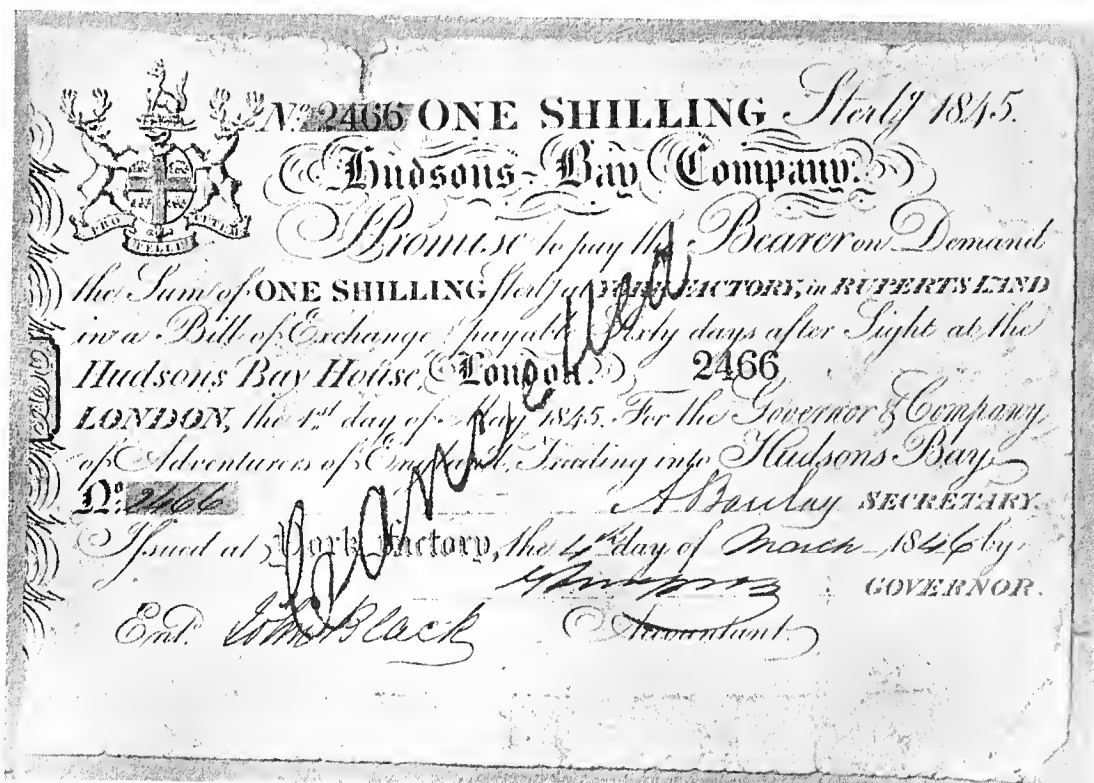 Nº 2466 ONE SHILLING Sterlg 1845.
Hudsons-Bay Company.
PRO PELLE CUTEM
Promise to pay the Bearer on Demand
the Sum of ONE SHILLING sterlg at YORK FACTORY, in RUPERTS LAND
in a Bill of Exchange payable Sixty days after Sight at the
Hudsons Bay House, London. 2466
LONDON, the 1st day of May 1845. For the Governor & Company
of Adventurers of England, Trading into Hudsons Bay.
Nº 2466 A Barclay SECRETARY.
Issued at York Factory, the 4th day of March 1846 by
GOVERNOR.
Ent. John Black Accountant
Cancelled